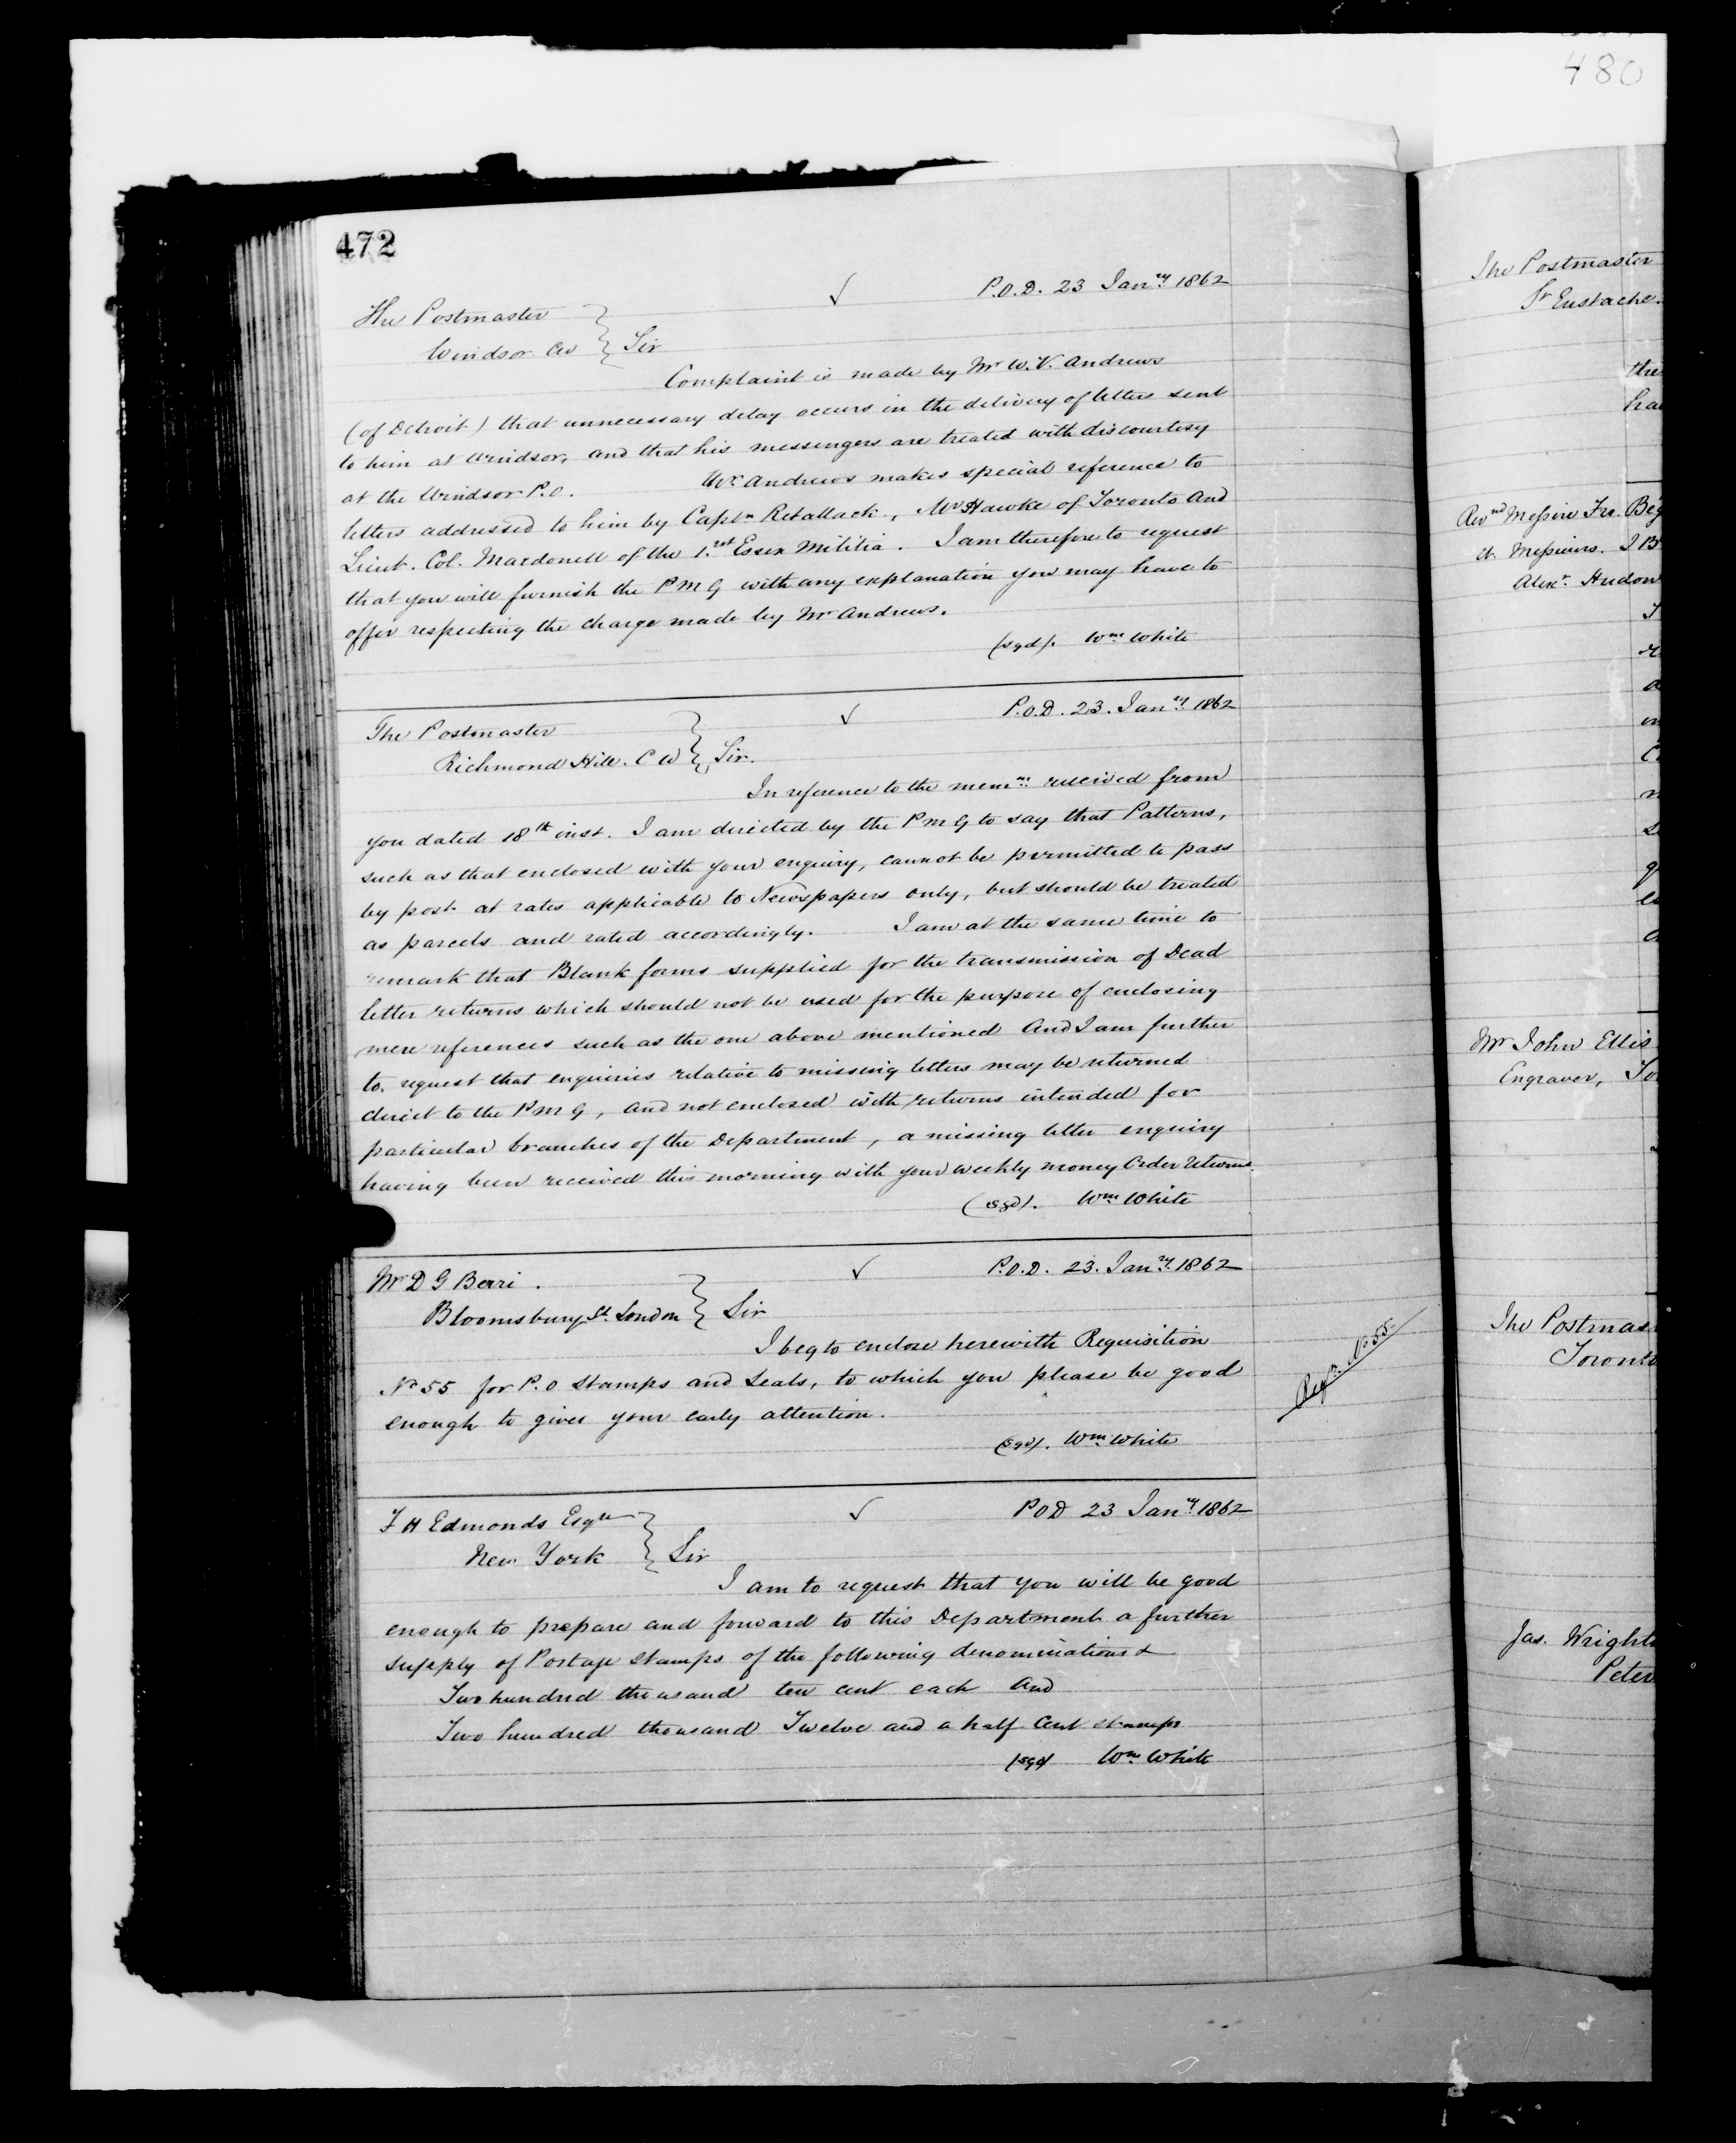 480
472
P.O.D. 23 Janry 1862
The Postmaster
Windsor CW } Sir
Complaint is made by Mr W. V. Andrews
(of Detroit) that unnecessary delay occurs in the delivery of letters sent
to him at Windsor, and that his messengers are treated with discourtesy
at the Windsor P.O. Mr Andrews makes special reference to
letters addressed to him by Captn Retallack, Mr Hawke of Toronto And
Lieut. Col. Macdonell of the 1.st Essex Militia. I am therefore to request
that you will furnish the PMG with any explanation you may have to
offer respecting the charge made by Mr Andrews.
(sgd). Wm White
P.O.D. 23. Janry 1862
The Postmaster
Richmond Hill. C W } Sir.
In reference to the memm received from
you dated 18th inst. I am directed by the PMG to say that Patterns,
such as that enclosed with your enquiry, cannot be permitted to pass
by post at rates applicable to Newspapers only, but should be treated
as parcels and rated accordingly. I am at the same time to
remark that Blank forms supplied for the transmission of Dead
letter returns which should not be used for the purpose of enclosing
mere references such as the one above mentioned And I am further
to request that enquiries relative to missing letters may be returned
direct to the PMG, and not enclosed with returns intended for
particular branches of the Department, a missing letter enquiry
having been received this morning with your weekly money Order returns.
(sgd). Wm White
P.O.D. 23. Janry 1862
Mr D G Berri.
Bloomsbury St. London } Sir
I beg to enclose herewith Requisition
No 55 for P.O stamps and Seals, to which you please be good
enough to give your early attention.
(sgd). Wm White
Reqn. No 55
POD 23 Janry 1862
F H Edmonds Esqre
New York } Sir
I am to request that you will be good
enough to prepare and forward to this Department a further
supply of Postage stamps of the following denominations
Two hundred thousand ten cent each And
Two hundred thousand Twelve and a half Cent stamps
(sgd) Wm White
The Postmaster
St Eustache.
the
Revnd Messire Frs.
et Messieurs.
Alexr. Hudon
Mr John Ellis
Engraver,
The
Toronto
Jas. Wright
Peter